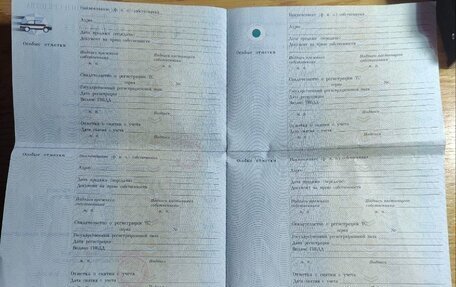 Наименование (ф. и. о.) собственника
Адрес
Дата продажи (передачи)
Документ на право собственности
Особые отметки
Подпись прежнего собственника
Подпись настоящего собственника
М. П.
М. П.
Свидетельство о регистрации ТС
серия №
Государственный регистрационный знак
Дата регистрации
Выдано ГИБДД
М. П.
Подпись
Отметка о снятии с учета
Дата снятия с учета
Наименование (ф. и. о.) собственника
Адрес
Дата продажи (передачи)
Документ на право собственности
Особые отметки
Подпись прежнего собственника
Подпись настоящего собственника
М. П.
М. П.
Свидетельство о регистрации ТС
серия №
Государственный регистрационный знак
Дата регистрации
Выдано ГИБДД
М. П.
Подпись
Отметка о снятии с учета
Дата снятия с учета
Особые отметки
Наименование (ф. и. о.) собственника
Адрес
Дата продажи (передачи)
Документ на право собственности
Подпись прежнего собственника
Подпись настоящего собственника
М. П.
М. П.
Свидетельство о регистрации ТС
серия №
Государственный регистрационный знак
Дата регистрации
Выдано ГИБДД
М. П.
Подпись
Отметка о снятии с учета
Дата снятия с учета
Особые отметки
Наименование (ф. и. о.) собственника
Адрес
Дата продажи (передачи)
Документ на право собственности
Подпись прежнего собственника
Подпись настоящего собственника
М. П.
М. П.
Свидетельство о регистрации ТС
серия №
Государственный регистрационный знак
Дата регистрации
Выдано ГИБДД
М. П.
Подпись
Отметка о снятии с учета
Дата снятия с учета